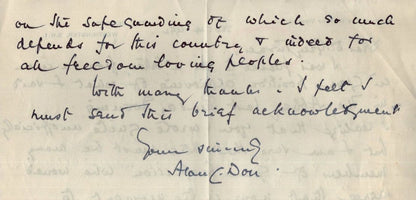 on the safeguarding of which so much
depends for this country & indeed for
all freedom loving peoples.
With many thanks. I felt I
must send this brief acknowledgment
Yours sincerely
Alan C. Don.